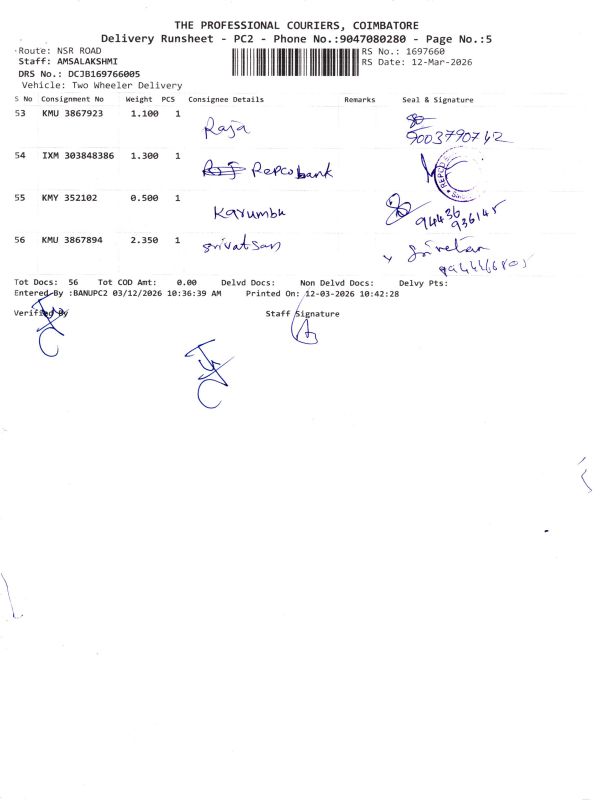 THE PROFESSIONAL COURIERS, COIMBATORE
Delivery Runsheet - PC2 - Phone No.:9047080280 - Page No.:5
Route: NSR ROAD RS No.: 1697660
Staff: AMSALAKSHMI RS Date: 12-Mar-2026
DRS No.: DCJB169766005
Vehicle: Two Wheeler Delivery
S No Consignment No Weight PCS Consignee Details Remarks Seal & Signature
53 KMU 3867923 1.100 1 Raja 9003790742
54 IXM 303848386 1.300 1 Repco bank REPCO
55 KMY 352102 0.500 1 Karumbu 94436 936145
56 KMU 3867894 2.350 1 srivatsan
Tot Docs: 56 Tot COD Amt: 0.00 Delvd Docs: Non Delvd Docs: Delvy Pts:
Entered By :BANUPC2 03/12/2026 10:36:39 AM Printed On: 12-03-2026 10:42:28
Verified By Staff Signature